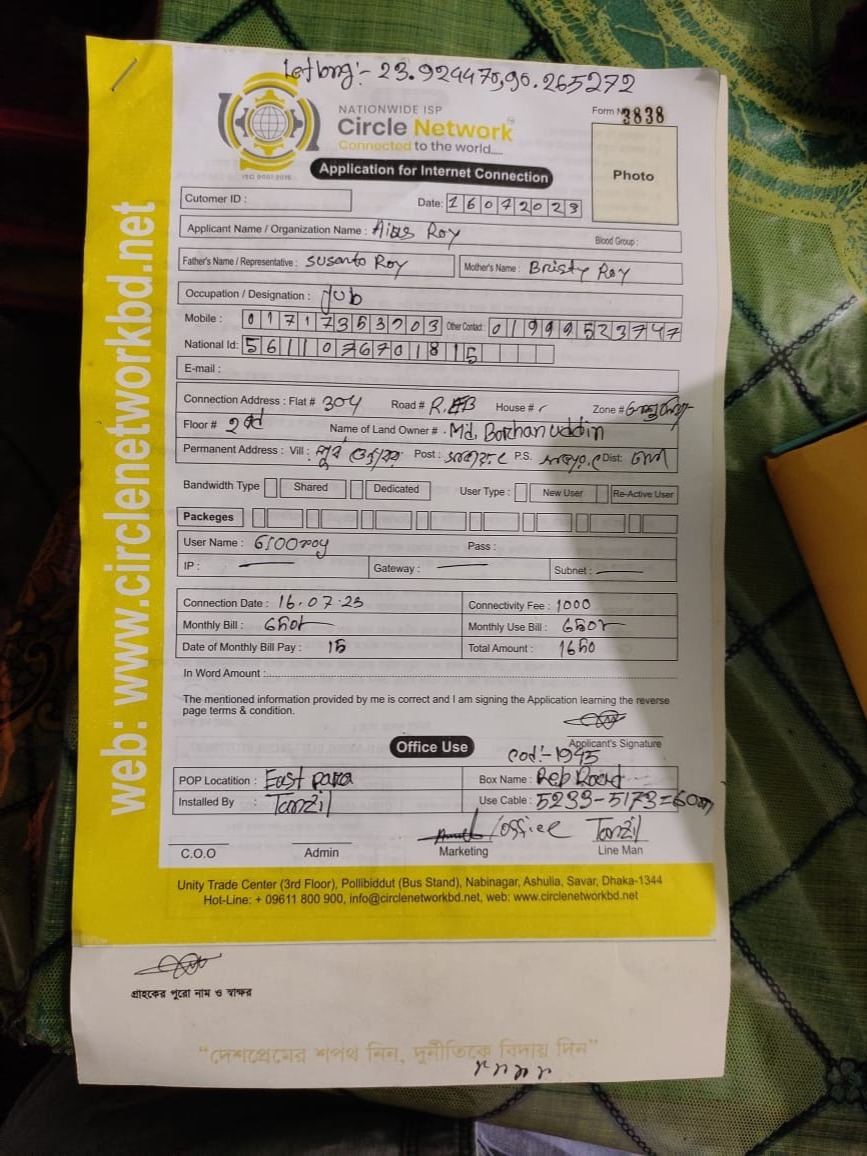 Letlong:- 23.924470,90.265272
NATIONWIDE ISP
Circle Network
Connected to the world.....
ISO 9001:2015
Form N 3838
Application for Internet Connection
Photo
Cutomer ID :
Date: 16072023
Applicant Name / Organization Name : Roy
Blood Group :
Father's Name / Representative : Susanto Roy Mother's Name : Bristy Roy
Occupation / Designation : Job
Mobile : 01717353703 Other Contact : 01999523747
National Id: 5611076701815
E-mail :
Connection Address : Flat # 304 Road # R.EB House # Zone #
Floor # 2nd Name of Land Owner # Md, Borhan uddin
Permanent Address : Vill : Post : P.S. Dist:
Bandwidth Type Shared Dedicated User Type : New User Re-Active User
Packeges
User Name : Pass :
IP : Gateway : Subnet :
Connection Date : 16.07.23 Connectivity Fee : 1000
Monthly Bill : Monthly Use Bill :
Date of Monthly Bill Pay : 15 Total Amount : 1650
In Word Amount :
The mentioned information provided by me is correct and I am signing the Application learning the reverse
page terms & condition.
Applicant's Signature
Office Use
Cod:- 1945
POP Locatition : East para Box Name : Reb Road
Installed By : Tanzil Use Cable : 5233-5173=60m
/office Tanzil
C.O.O Admin Marketing Line Man
Unity Trade Center (3rd Floor), Pollibiddut (Bus Stand), Nabinagar, Ashulia, Savar, Dhaka-1344
Hot-Line: + 09611 800 900, info@circlenetworkbd.net, web: www.circlenetworkbd.net
web: www.circlenetworkbd.net
গ্রাহকের পুরো নাম ও স্বাক্ষর
“দেশপ্রেমের শপথ নিন, দুর্নীতিকে বিদায় দিন”